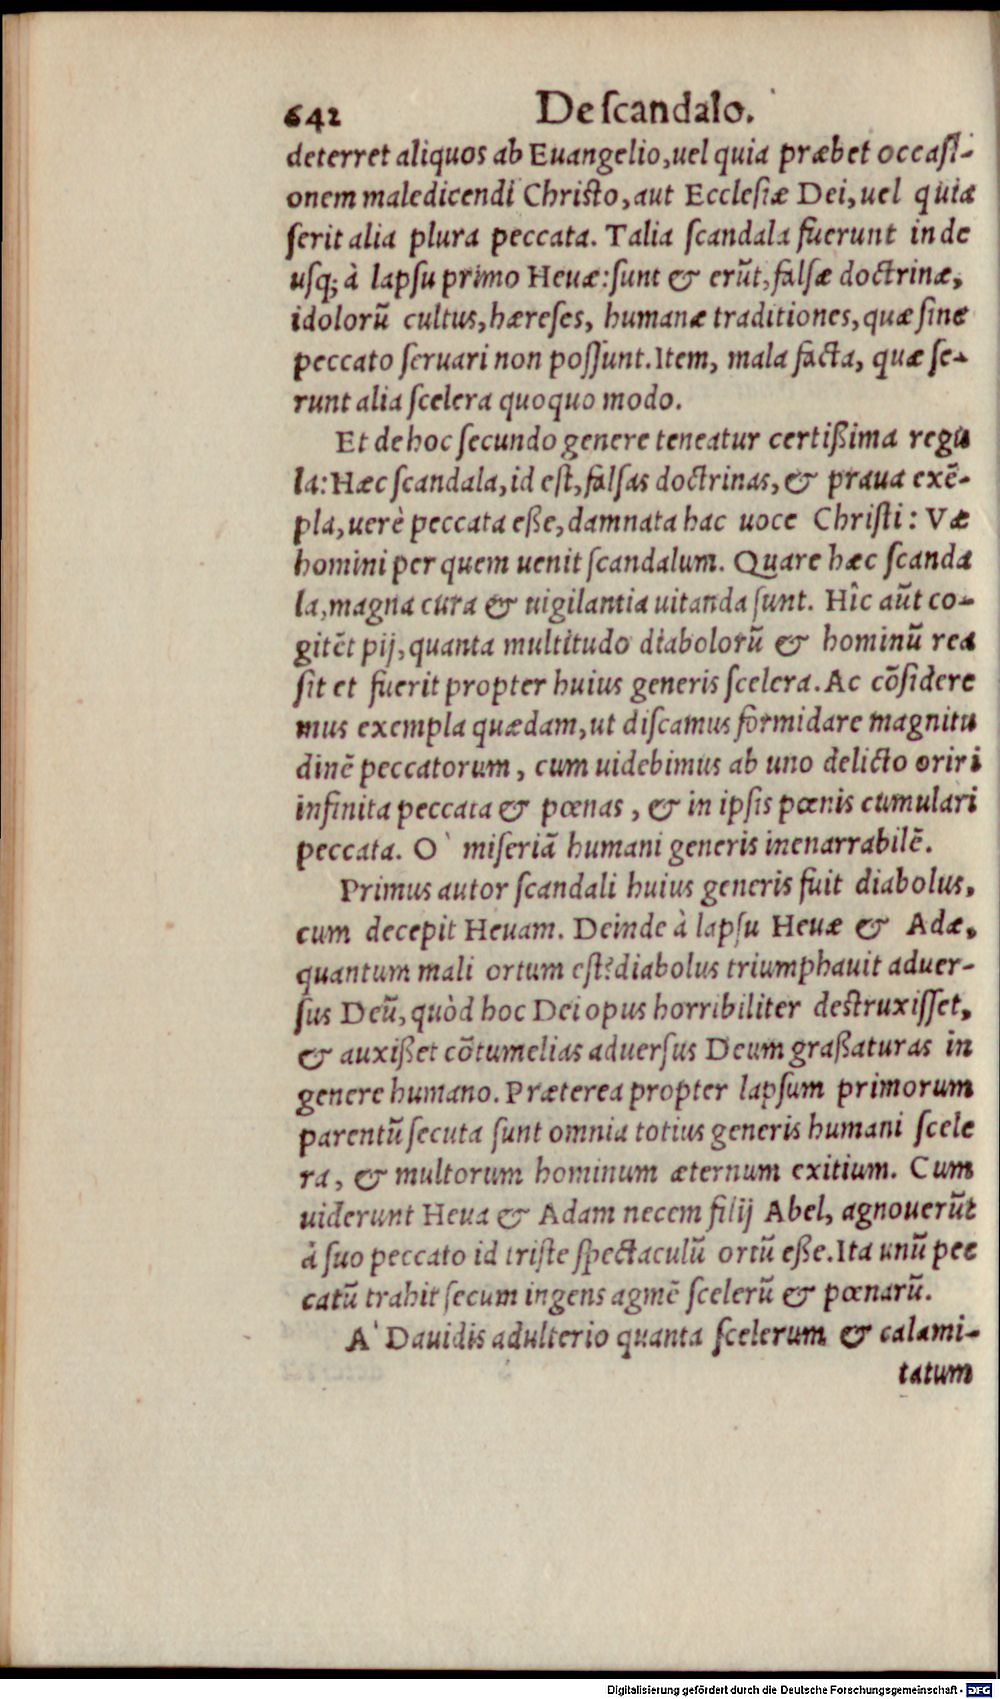 642 De ſcandalo.
deterret aliquos ab Euangelio, uel quia præbet occaſi-
onem maledicendi Chriſto, aut Eccleſiæ Dei, uel quia
ſerit alia plura peccata. Talia ſcandala fuerunt inde
uſq; à lapſu primo Heuæ: ſunt & erũt, falſæ doctrinæ,
idolorũ cultus, hæreſes, humanæ traditiones, quæ ſine
peccato ſeruari non poſſunt. Item, mala facta, quæ ſe-
runt alia ſcelera quoquo modo.
Et de hoc ſecundo genere teneatur certißima regu
la: Hæc ſcandala, id eſt, falſas doctrinas, & praua exẽ-
pla, uerè peccata eße, damnata hac uoce Chriſti: Væ
homini per quem uenit ſcandalum. Quare hæc ſcanda
la, magna cura & uigilantia uitanda ſunt. Hîc aũt co-
gitẽt pij, quanta multitudo diabolorũ & hominũ rea
ſit et fuerit propter huius generis ſcelera. Ac cõſidere
mus exempla quædam, ut diſcamus formidare magnitu
dinẽ peccatorum, cum uidebimus ab uno delicto oriri
infinita peccata & pœnas, & in ipſis pœnis cumulari
peccata. O` miſeriã humani generis inenarrabilẽ.
Primus autor ſcandali huius generis fuit diabolus,
cum decepit Heuam. Deinde à lapſu Heuæ & Adæ,
quantum mali ortum eſt? diabolus triumphauit aduer-
ſus Deũ, quòd hoc Dei opus horribiliter deſtruxiſſet,
& auxißet cõtumelias aduerſus Deum graßaturas in
genere humano. Præterea propter lapſum primorum
parentũ ſecuta ſunt omnia totius generis humani ſcele
ra, & multorum hominum æternum exitium. Cum
uiderunt Heua & Adam necem filij Abel, agnouerũt
à ſuo peccato id triſte ſpectaculũ ortũ eße. Ita unũ pec
catũ trahit ſecum ingens agmẽ ſcelerũ & pœnarũ.
A` Dauidis adulterio quanta ſcelerum & calami-
tatum
Digitalisierung gefördert durch die Deutsche Forschungsgemeinschaft - DFG